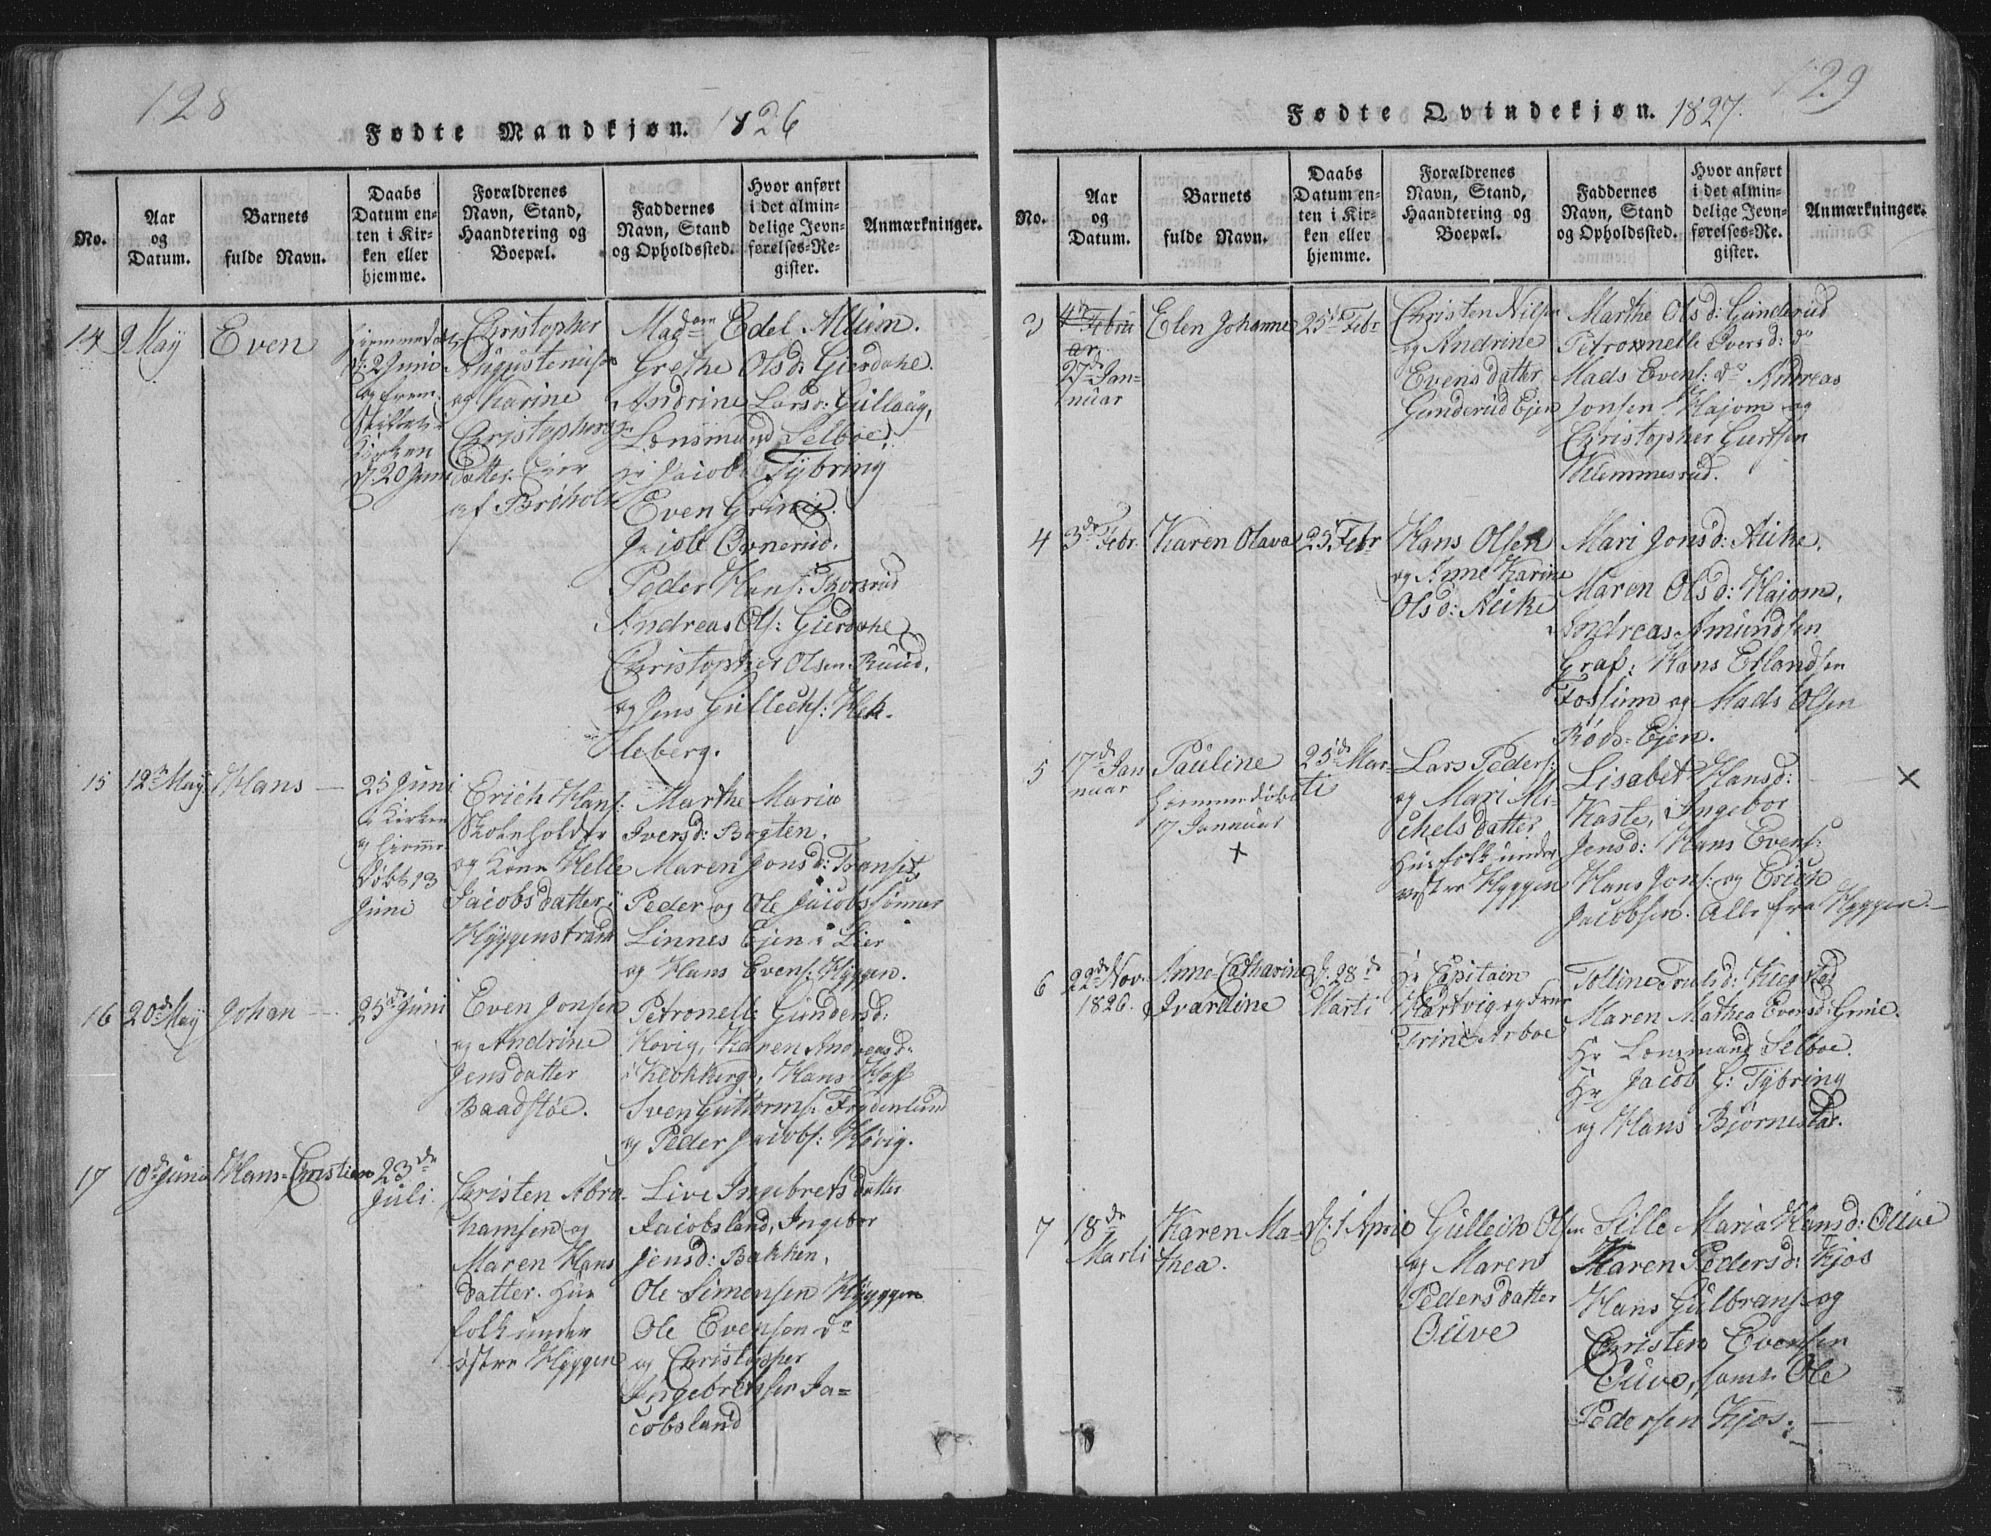 128
Fødte Mandkjøn. 1826
No.
Aar og Datum.
Barnets fulde Navn.
Daabs Datum enten i Kirken eller hjemme.
Forældrenes Navn, Stand, Haandtering og Boepæl.
Faddernes Navn, Stand og Opholdssted.
Hvor anført i det almindelige Jevnførelses-Register.
Anmærkninger.
14
9 May
Even
hjemmedøbt
d: 2 Juni
og frem-
stillet i
Kirken
d: 20 Juni
Christopher
Augustenusen
og Karine
Christophers
datter. Ejer
af Bröholt
Madam Edel Allum.
Grethe Olsd: Gierdahl.
Andrine Larsd: Gullaug,
Lensmand Selboe,
Hr Jacob Tybring
Even Grini.
Jacob Ovnerud.
Peder Hans:
Andreas Ols: Gierdahl
Christopher Olsen Ruud,
og Jens Gullechs: Hek-
leberg.
15
12te May
Hans
25 Juni
i Kirken
og hjemme
døbt 13
Juni
Erich Hans:
Skoleholder
og Kone Helle
Jacobsdatter
Hyggenstrand
Marthe Maria
Iversd: Bogten.
Maren Jonsd: Transet,
Peder og Ole Jacobssønner
Linnes Ejen i Lier
og Hans Evens: Hyggen.
16
20de May
Johan
25de Juni
Even Jonsen
og Andrine
Jensdatter
Baadstøe.
Petronelle Gundersd:
Høvig, Karen Andreasd:
Klokkerg, Hans Hoff
Sven Guttorms: Frydenlund
og Peder Jacobs: Høvig.
17
10de Juni
Hans Christian
23de
Juli.
Christen Abra-
hamsen og
Maren Hans
datter. Hus-
folk under
østre Hyggen
Live Ingebretsdatter
Jacobsland, Ingebor
Jensd: Bakken,
Ole Simensen Hyggen
Ole Evensen do
og Christopher
Ingebretsen Ja-
cobsland
129
Fødte Qvindekjøn. 1827.
No.
Aar og Datum.
Barnets fulde Navn.
Daabs Datum enten i Kirken eller hjemme.
Forældrenes Navn, Stand, Haandtering og Boepæl.
Faddernes Navn, Stand og Opholdssted.
Hvor anført i det almindelige Jevnførelses-Register.
Anmærkninger.
3
4de Febru
ar
27de Jan-
nuar
Elen Johanne
25de Febr
Christen Nilsen
og Andrine
Evensdatter
Gunderud Ejen
Marthe Olsd: Gunderud
Petronnelle Iversd: do
Mads Evens: do Andreas
Jonsen Hajom og
Christopher Gurtsen
Klemmesrud.
4
3de Febr.
Karen Olava
25 Febr
Hans Olsen
og Anne Karine
Olsd: Auke
Mari Jonsd: Auke.
Maren Olsd: Hajom,
Andreas Amundsen
Graf: Hans Erlandsen
Fossum og Mads Olsen
Røds-Ejen.
5
17de Jan
nuar
Pauline
hjemmedøbt
17 Jannuar
×
25de Mar-
ti
Lars Peders:
og Mari Mi-
chelsdatter
Husfolk under
vestre Hyggen
Lisabet Hansd:
Kaste, Ingebor
Jensd: Hans Evens:
Hans Jons: og Erich
Jacobsen. Alle fra Hyggen.
×
6
22de Nov.
1826.
Anne Catharine
Ivardine
d: 28de
Marti
Hr Capitain
Hartvig og Frue
Trine Arboe
Tolline Trulsd: Kiegstad
Maren Mathea Eversd: Grine.
Hr Lensmand Selboe.
Hr Jacob G: Tybring
og Hans Bjørnestar.
7
18de
Marti
Karen Ma-
thea.
d: 1 April
Gulleich Olsen
og Maren
Pedersdatter
Ouve
Sille Maria Hansd: Ouve
Karen Pedersd: Kjos
Hans Gulbrans: og
Christen Evensen
Ouve, samt Ole
Pedersen Kjos: